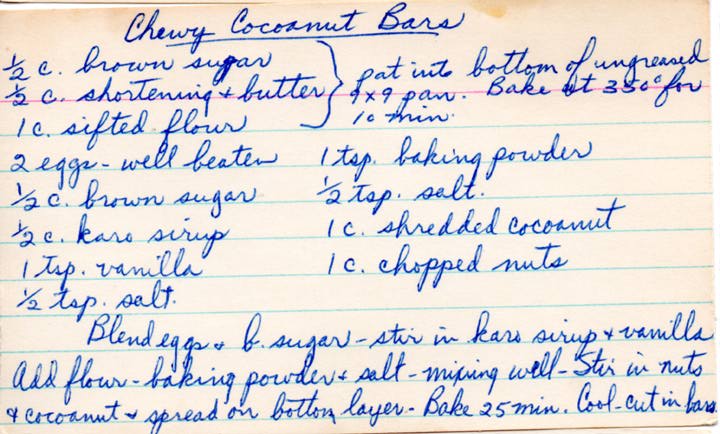 Chewy Cocoanut Bars
½ c. brown sugar
½ c. shortening & butter
1 c. sifted flour
pat into bottom of ungreased
9x9 pan. Bake at 350° for
10 min.
2 eggs - well beaten
½ c. brown sugar
½ c. karo sirup
1 tsp. vanilla
½ tsp. salt.
1 tsp. baking powder
½ tsp. salt.
1 c. shredded cocoanut
1 c. chopped nuts
Blend eggs & b. sugar - stir in karo sirup & vanilla
Add flour - baking powder & salt - mixing well - Stir in nuts
& cocoanut & spread on bottom layer - Bake 25 min. Cool - cut in bars